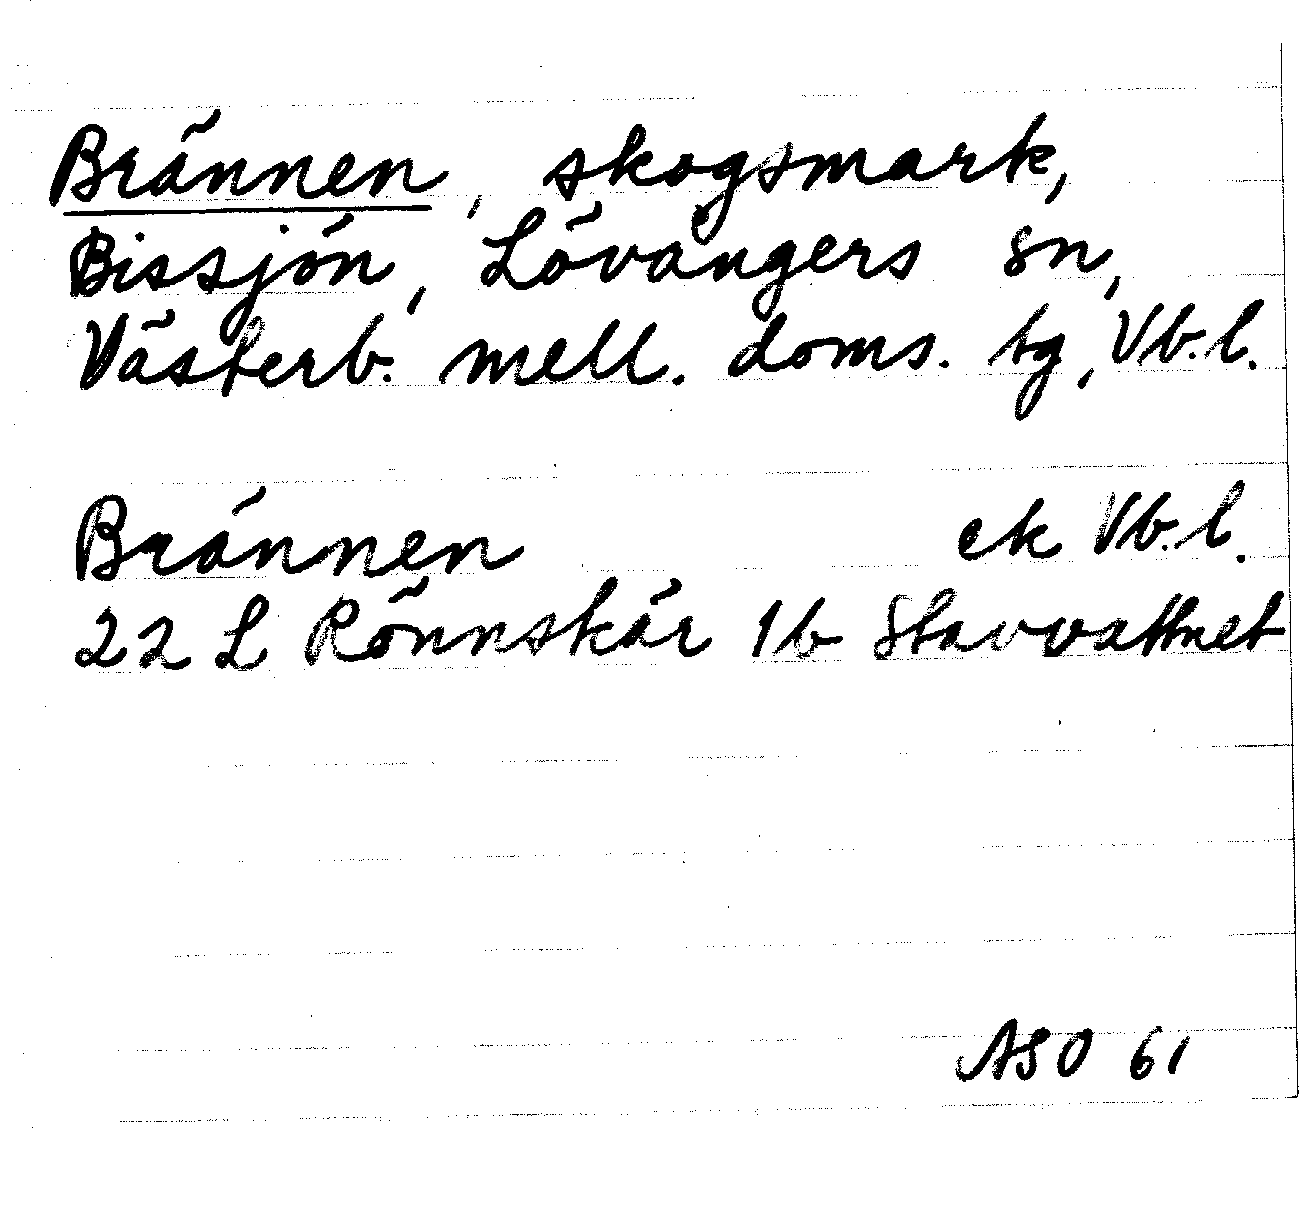 Brännen, skogsmark,
Bissjön, Lövångers sn,
Västerb. mell. doms. tg, Vb.l.
Brännen ek Vb.l.
22 L Rönnskär 1b Stavvattnet
ASO 61